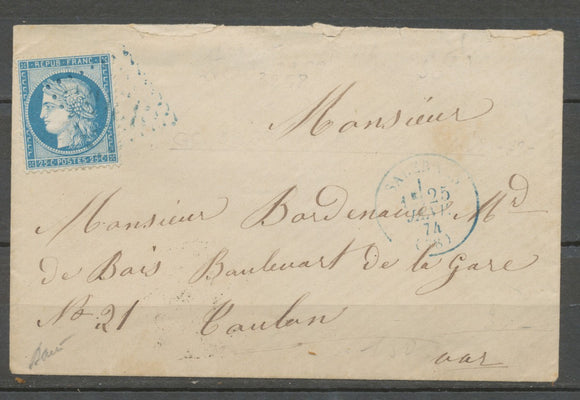 REPUB·FRANC·
25·C·POSTES·25·C·
25
JANV
74
Monsieur
Monsieur Bordenave Md
de Bois Boulevart de la Gare
No 21 Toulon
var